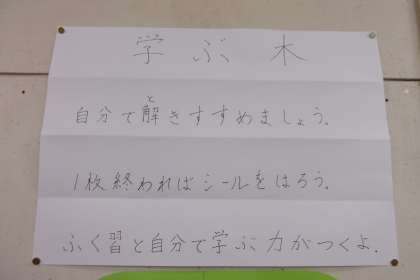 学ぶ木
自分で解きすすめましょう。
1枚終わればシールをはろう。
ふく習と自分で学ぶ力がつくよ.